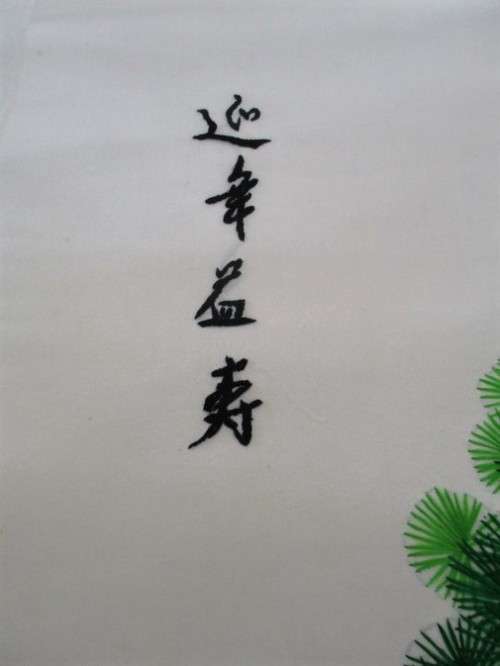 延年益寿